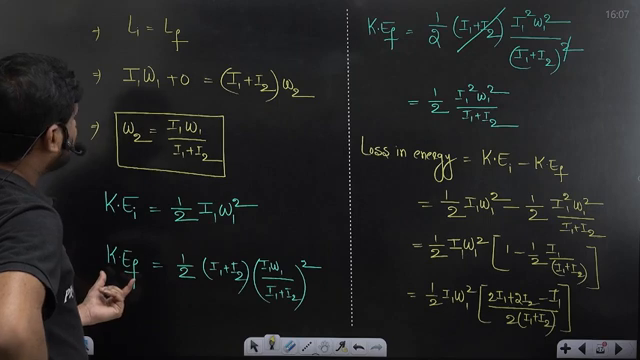 ⇒ L₁ = L_f
⇒ I₁ω₁ + 0 = (I₁+I₂) ω₂
⇒ ω₂ = I₁ω₁ / (I₁+I₂)
K·E_i = 1/2 I₁ω₁²
K·E_f = 1/2 (I₁+I₂) (I₁ω₁ / (I₁+I₂))²
K·E_f = 1/2 (I₁+I₂) I₁²ω₁² / (I₁+I₂)²
= 1/2 I₁²ω₁² / (I₁+I₂)
Loss in energy = K·E_i − K·E_f
= 1/2 I₁ω₁² − 1/2 I₁²ω₁² / (I₁+I₂)
= 1/2 I₁ω₁² [1 − 1/2 I₁ / (I₁+I₂)]
= 1/2 I₁ω₁² [(2I₁+2I₂−I₁) / 2(I₁+I₂)]
16:07